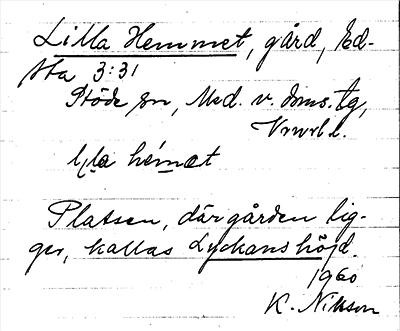 Lilla Hemmet, gård, Ed-
sta 3:31
Stöde sn, Med. v. doms. tg,
Vnrrl l.
lịla hémat
Platsen, där gården lig-
ger, kallas Lyckans höjd.
1960
K. Nilsson